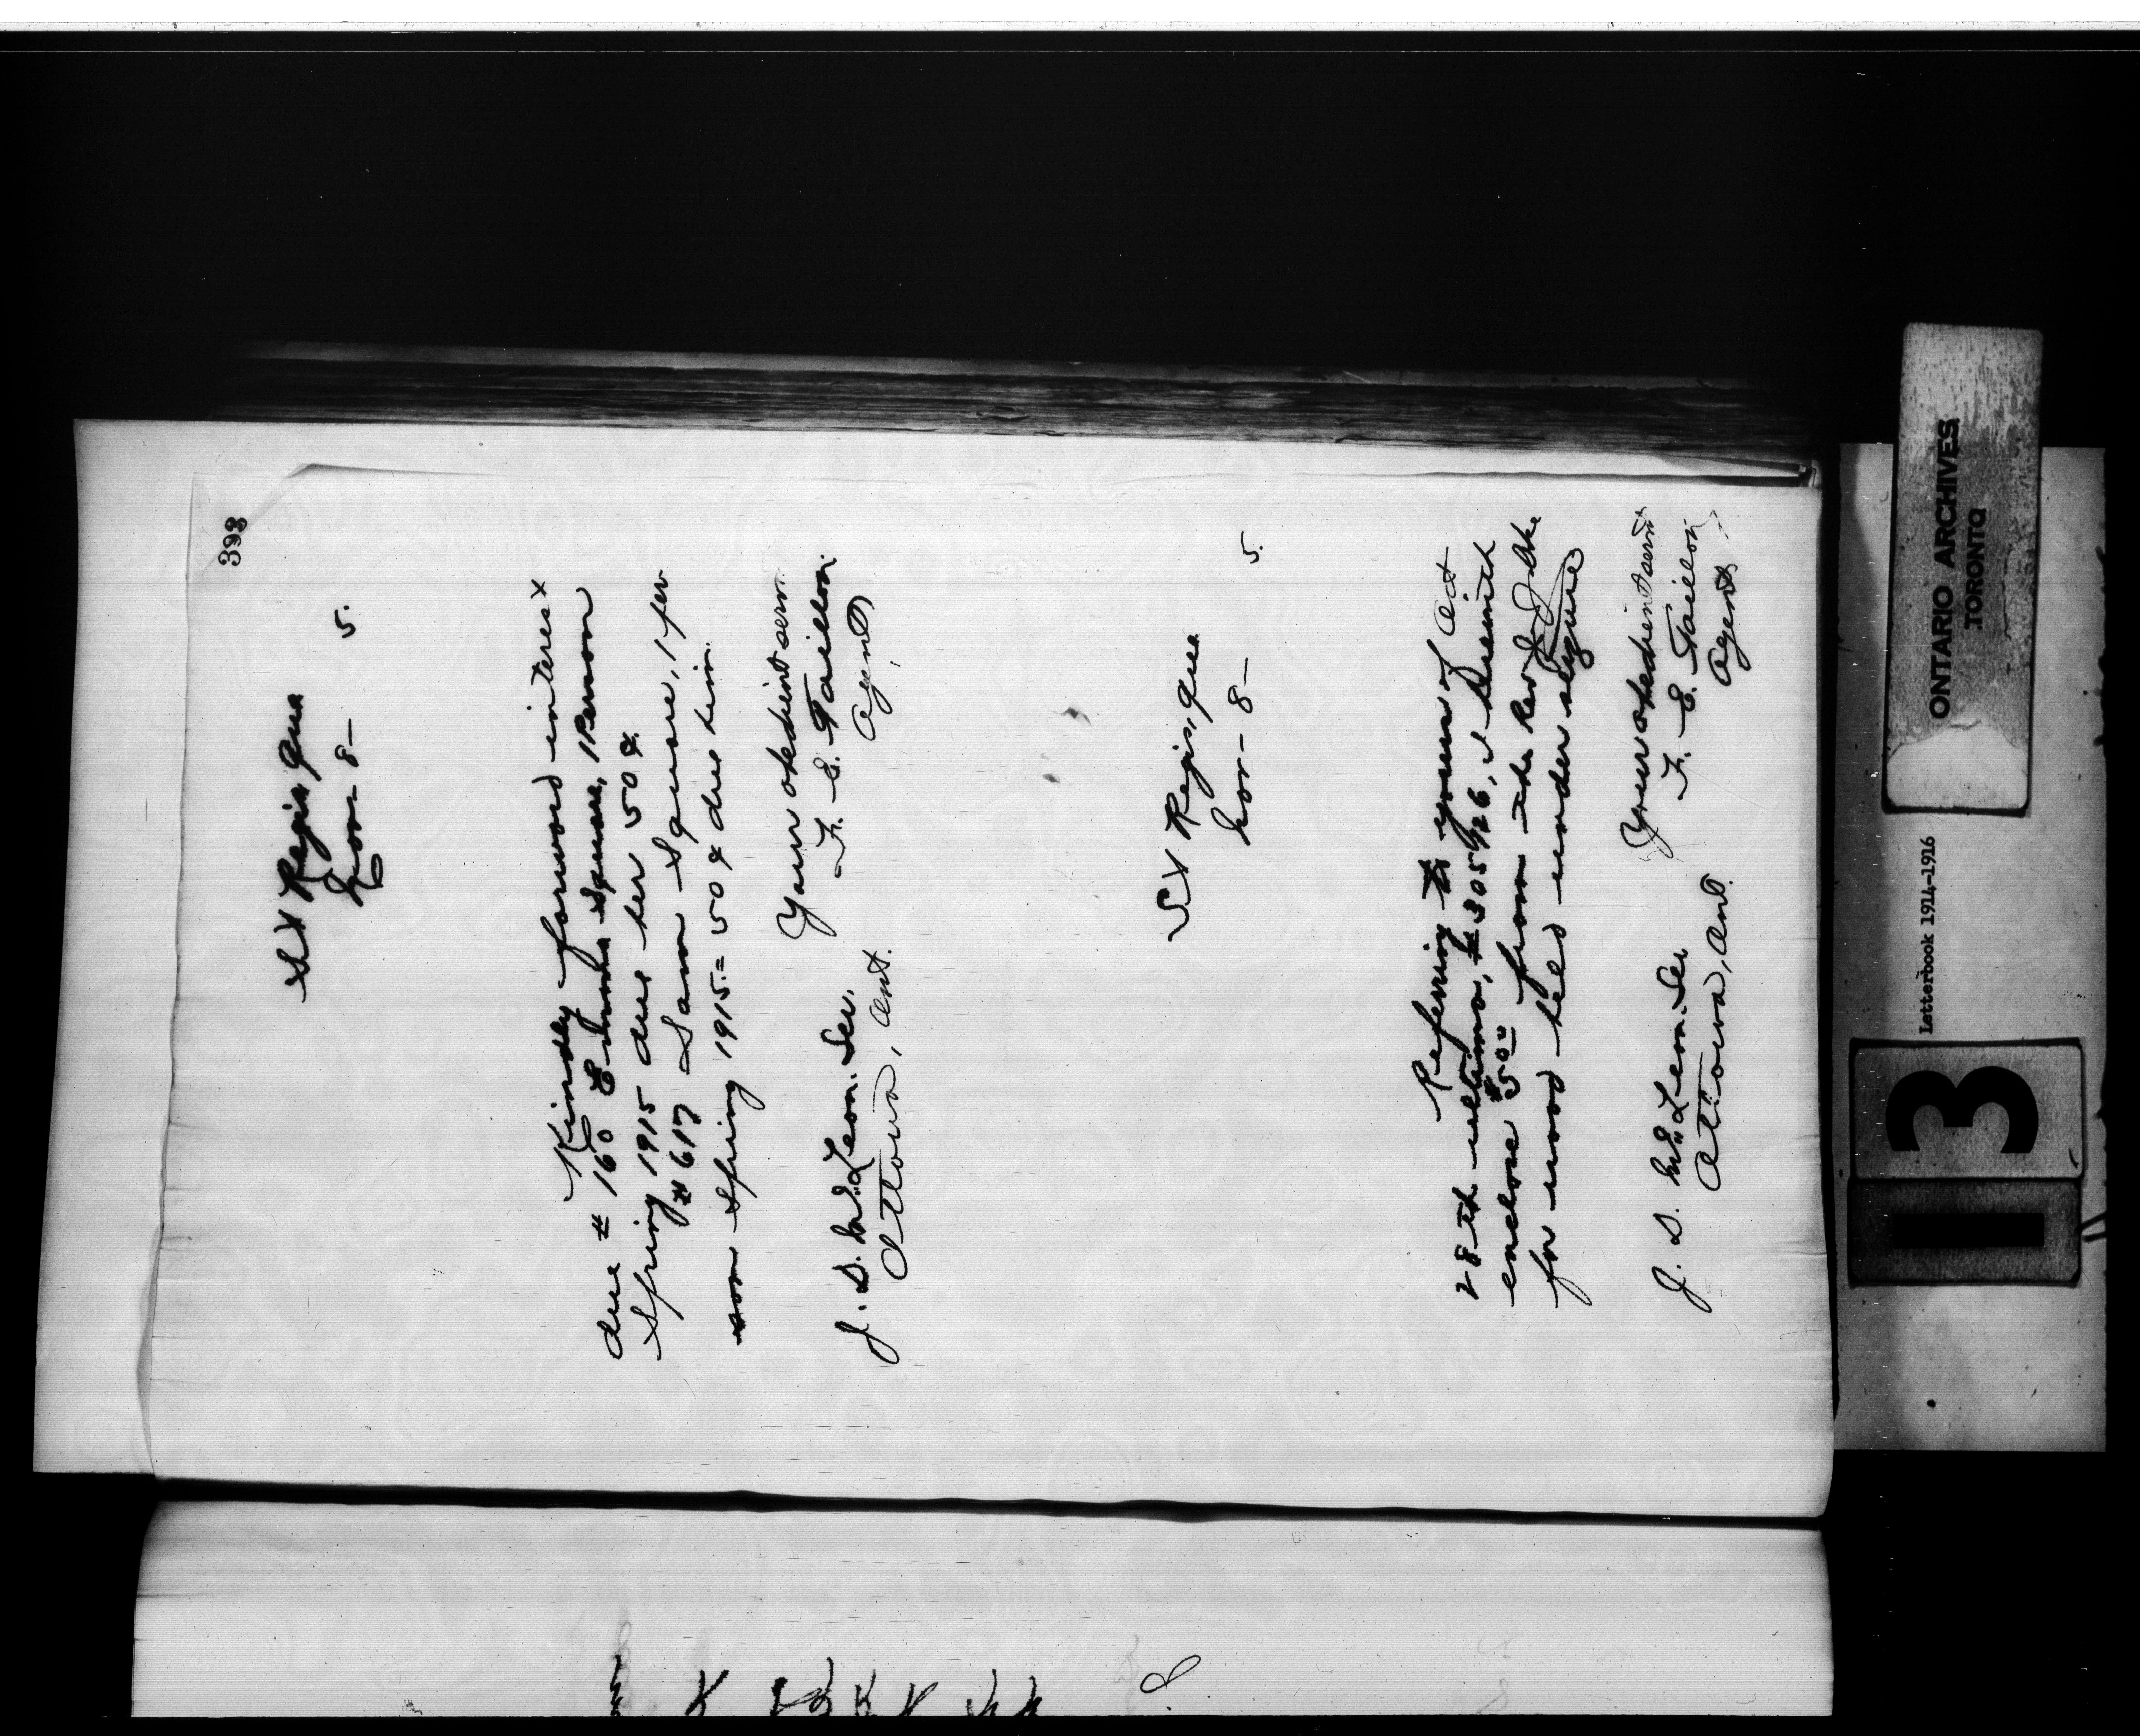 393
St Regis, Que
Nov 8- 5.
Kindly forward interest
due # 160 Emma Square, 1 Person
Spring 1915 due her 50¢
# 617 Sam Square, 1 per
son Spring 1915.= 50¢ due him.
Your obedient serv.
F. E. Taillon
Agent,
J. D. McLean. Sec.
Ottawa, Ont.
St Regis, Que
Nov- 8- 5.
Referring to yours of Oct
28th ultimo, # 305926, I herewith
enclose $50.00 from the Rev
for wood held under seizure
Your obedient servt
F. E. Taillon
Agent
J. D. McLean. Sec
Ottawa, Ont.
ONTARIO ARCHIVES
TORONTO
Letterbook 1914-1916
3